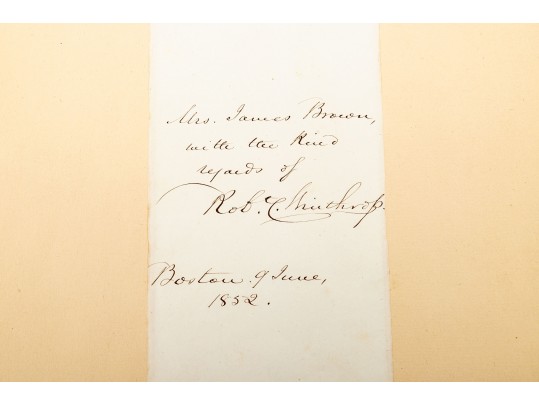 Mrs. James Brown,
with the kind
regards of
Rob. C. Winthrop.
Boston. 9 June,
1852.